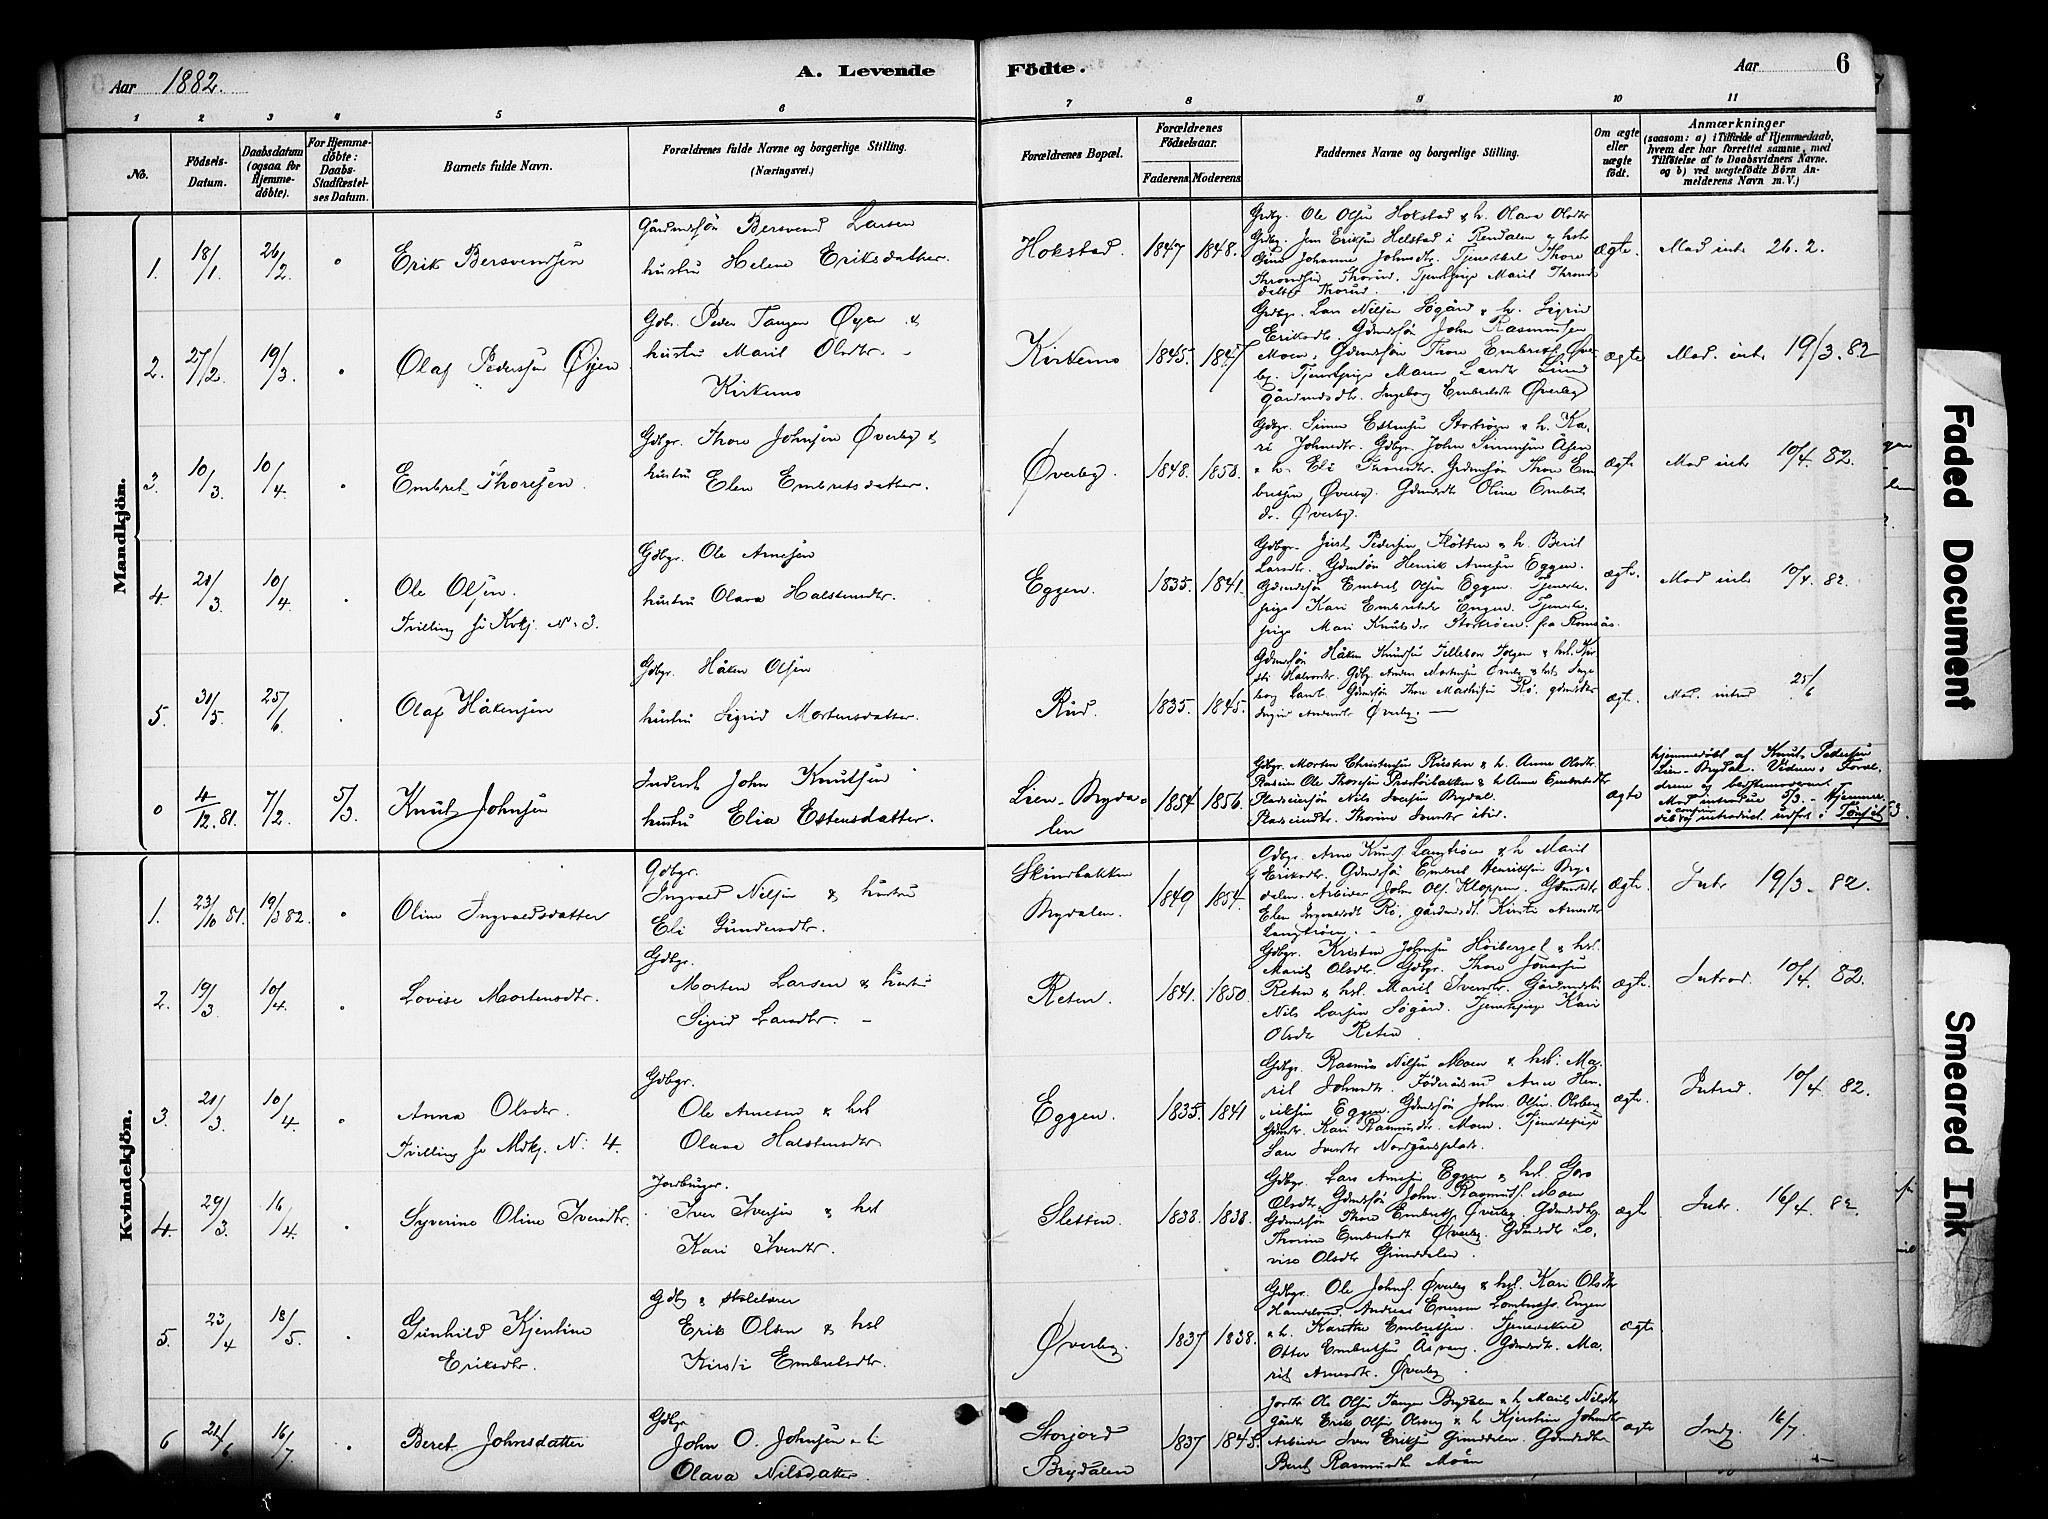 Aar 1882.
A. Levende
Födte.
Aar
6
1 2 3 4 5 6 7 8 9 10 11
No.
Födsels-
Datum.
Daabsdatum
(ogsaa for
Hjemme-
døbte).
For Hjemme-
døbte:
Daabs-
Stadfæstel-
ses Datum.
Barnets fulde Navn.
Forældrenes fulde Navne og borgerlige Stilling.
(Næringsvei.)
Forældrenes Bopæl.
Forældrenes
Födselsaar.
Faderens.
Moderens.
Faddernes Navne og borgerlige Stilling.
Om ægte
eller
uægte
født.
Anmærkninger
(saasom: a) i Tilfælde af Hjemmedaab,
hvem der har forrettet samme, med
Tilföielse af to Daabsvidners Navne.
og b) ved uægtefödte Börn An-
melderens Navn m. V.)
Mandkjön.
1. 18/1. 26/2.
Erik Bersvendsen
Gårdmdsøn Bersvend Larsen
hustru Helene Eriksdatter.
Hokstad. 1847 1848.
Grdbg. Ole Olsen Hokstad & h. Olava Olsdtr
Grdbg. Jens Eriksen Helstad i Rendalen
Johanne Johnsdtr. Thore
Throndsen Thorud. Marit Thrond
Thorud.
ægte. Mod intr 26.2.
2. 27/2. 19/3.
Olaf Pedersen Øyen
Gdb. Peder Tangen Øyen &
hustru Marit Olsdtr.
Kirkemo
Kirkemo 1845. 1847
Grdbgr. Lars Nilsen Søgård & h. Sigrid
Eriksdtr. Gdmdsøn John Rasmusen
Moen, Gdmdsøn Thore Embretsn Øver-
by.
gårdmdsdtr. Ingeborg Embretsdtr Øverby
ægte Mod. intr 19/3. 82
3. 10/3. 10/4.
Embret Thoresen.
Gdbgr. Thore Johnsen Øverby &
hustru Elen Embretsdatter.
Øverby 1848. 1850.
Gdbgr. Simen Estensen Storrøen & h. Ka-
ri Johnsdtr. Gdbgr. John Simensen Åsen
& h. Eli Thoresdtr. Grdmdsøn Thore Em
bretsen Øverby. Gdmdsdtr Oline Embrets
dr. Øverby.
ægte Mod intr 10/4. 82.
4. 20/3. 10/4.
Ole Olsen.
Tvilling se Kvkj. N: 3.
Gdbgr. Ole Arnesen
hustru Olava Halstensdtr.
Eggen. 1835. 1841.
Gdbgr. Pedersen & h. Berit
Larsdtr. Gdmdsøn Henrik Arnesen Eggen.
Gdmdsøn Embret Olsen Eggen. Tjeneste-
pige Kari Embretsdtr Engen. Tjeneste-
pige Mari Knutsdtr Storrøen.
ægte. Mod intr 10/4. 82.
5. 31/5. 25/6.
Olaf Håkensen
Gdbgr. Håken Olsen
hustru Sigrid Mortensdatter.
Rud. 1835. 1845.
Gdmdsøn Håken Knudsen
Halvorsdtr. Gdbg. Anders Mortensen Øverby
Øverby.
ægt. Mod. introd 25/6
0 4/12. 81. 7/2. 5/3.
Knut Johnsen
Inderst John Knutsen
hustru Elia Estensdatter.
Lien - Bryda-
len 1854. 1856.
Gdbgr. Morten Christensen & h. Anne Olsdtr
Ole Thoresen Præstbakken & h. Anne Embretsdtr
Pladseiersøn Nils Iversen Brydal.
ægte
hjemmedøbt af Knut Pedersen
Lien - Brydal. Vidner: Foræl-
drene og bedstemoderen.
Mod introduc 5/3. - Hjemme-
introduct. udfst. i Tønset
Kvindekjön.
1. 23/10 81. 19/3 82.
Oline Ingvaldsdatter
Gdbgr.
Ingvald Nilsen & hustru
Eli Gundersdtr.
Skindbakken
Brydalen. 1849 1854.
Gdbgr. Arne Knuds. Langrøen & h. Marit
Eriksdtr. Gdmdsøn Embret Henriksen Bry-
dalen. Arbeider John Ols. Kloppen. Gdmdsdtr
Elen Ingvaldsdt Rø, gårdmdsdt. Kirsti Arnesdtr
Langrøen.
ægte. Intr 19/3 - 82.
2. 19/3. 10/4.
Lovise Mortensdtr.
Gdbgr.
Morten Larsen & hustru
Sigrid Larsdtr. -
Reten. 1841. 1850.
Gdbgr. Kristen Johnsen & hst.
Marit Olsdtr. Gdbgr. Thore Jonassen
Reten & hst. Marit Svendtr. Gårdmdssøn
Nils Larsen Søgård. Tjenestepige Kari
Olsdtr Reten
ægte. Introd. 10/4. 82.
3. 20/3. 10/4.
Anna Olsdtr.
Tvilling se Mdkj. N: 4.
Gdbgr.
Ole Arnesen & hst
Olava Halstensdtr
Eggen. 1835. 1841
Gdbgr. Rasmus Nilsen Moen & hst. Ma-
rit Johnsdtr. Føderåds Arne Hen-
riksen Eggen. Gdmdsøn John Olsen
Kari Rasmusdtr. Moen. Tjenestepige
ægte. Introd 10/4. 82.
4. 29/3. 16/4.
Syverine Oline Iversdtr.
Jordbruger.
Iver Iversen & hst
Kari Iversdtr.
Sletten. 1838. 1838.
Gdbgr. Lars Arnesen Eggen & hst. Goro
Olsdt. Gdmdsøn John Rasmuss. Moen
Gdmdsøn Thore Embrets. Øverby. Gdmdsdtr.
Thorine Embretsdt Øverby. Gdmdsdtr Lo-
vise Olsdtr Grimsdalen.
ægte Intr. 16/4. 82.
5. 23/4. 18/5.
Gunhild Kjerstine
Eriksdtr.
Gdbg & skolelærer
Erik Olsen & hst
Kirsti Embretsdtr.
Øverby. 1837 1838.
Gdbgr. Ole Johns. Øverby & hst. Kari Olsdtr
Handelsmd. Andreas Enersen Engen
& h. Karethe Embretsen. Tjenestekarl
Otter Embretsen Åsvang. Gdmdsdtr. Ma-
rit Arnesdtr. Øverby
ægte
6 21/6 16/7
Beret Johnsdatter
Gdbgr
John O. Johnsen & h.
Olava Nilsdatter.
Storjord
Brydalen 1837 1845.
Ole Olsen Tangen Brydalen & h. Marit Nilsdtr
Erik Olsen & h. Kjerstine Johnsdtr
Arbeider Iver Eriksen Grimsdalen. Gdmdsdtr
Beret Rasmusdtr Moen
ægte 16/7.
Faded Document
Smeared Ink